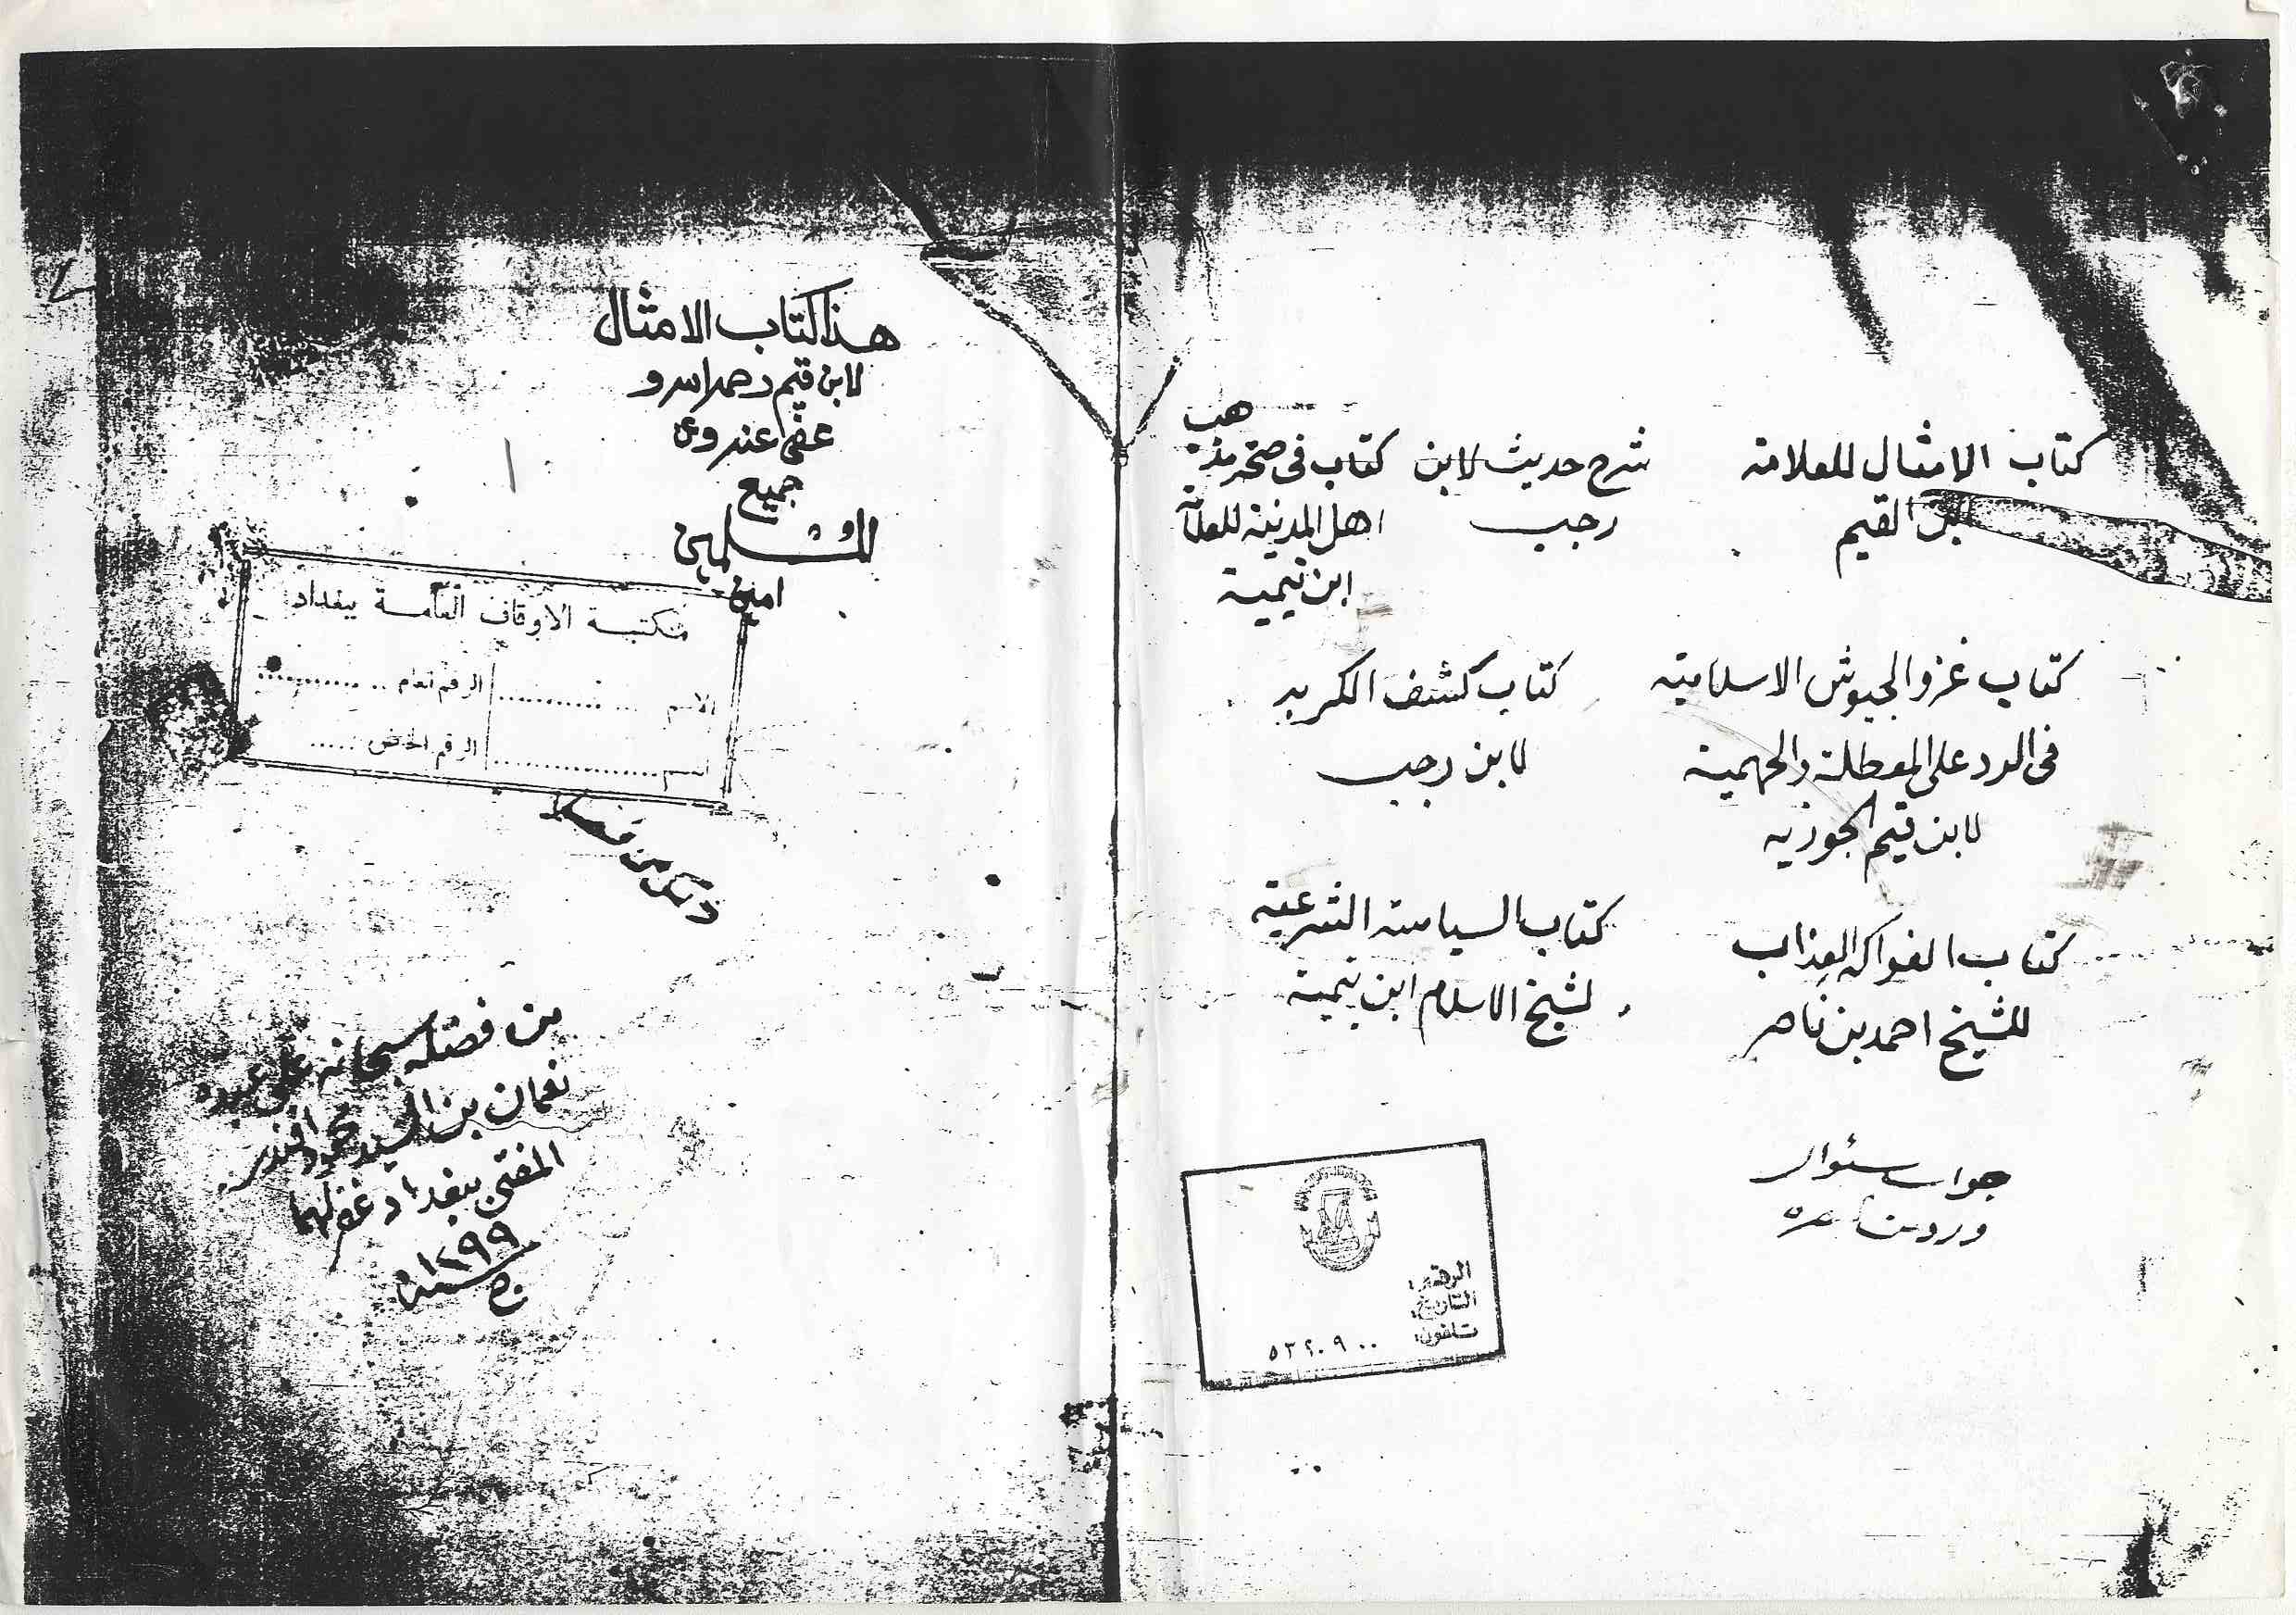 كتاب الامثال للعلامة
ابن القيم
شرح حديث لابن
رجب
كتاب فى صحة مذ
هب
اهل المدينة للعلامة
ابن تيمية
كتاب غزو الجيوش الاسلامية
فى الرد على المعطلة والجهمية
لابن قيم الجوزيه
كتاب كشف الكربه
لابن رجب
كتاب الفواكه العذاب
للشيخ احمد بن ناصر
كتاب السياسة الشرعية
لشيخ الاسلام ابن تيمية
جواب سئوال
ورد من
الرقم:
التاريخ:
تلفون:
٥٣٢٠٩٠٠
هذا كتاب الامثال
لابن قيم رحمه الله و
عفى عنه وعن
جميع
المسلمين
امين
مكتبة الاوقاف العامة ببغداد
الاسم
الرقم العام
القسم
الرقم الخاص
من فضله سبحانه على عبده
نعمان بن السيد محمود افندى
المفتى ببغداد غفر لهما
سنة ١٢٩٩